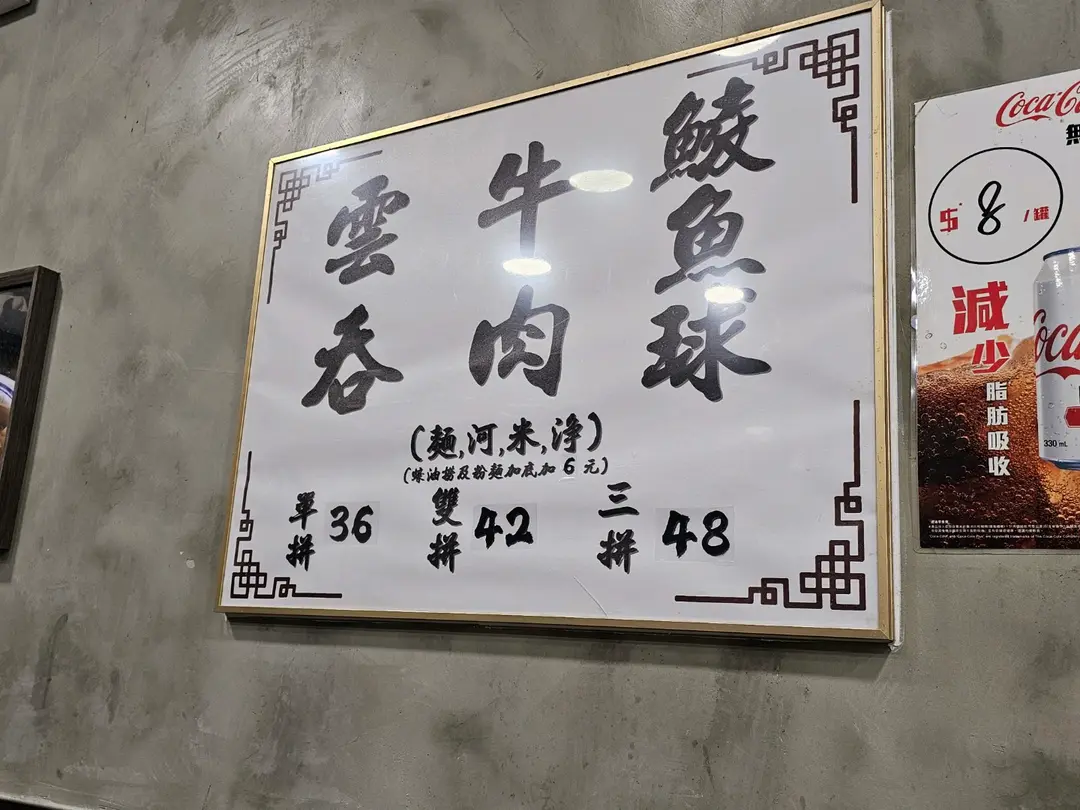 鯪魚球
牛肉
雲吞
(麵,河,米,淨)
(柴油撈及粉麵加底加6元)
單拼 36
雙拼 42
三拼 48
Coca-Co
無
$8/罐
減少
脂肪吸收
Coca
330 mL